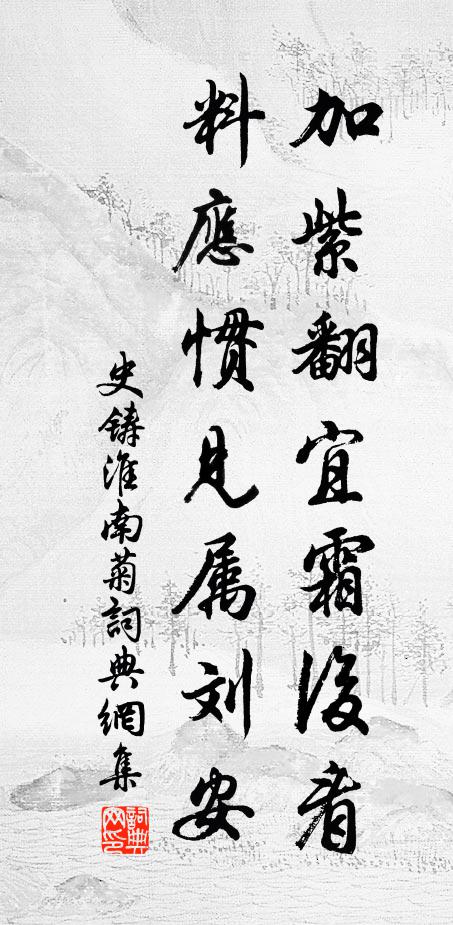 加紫翻宜霜後看
料應慣見属刘安
史鑄淮南菊詞典網集
詞典網印